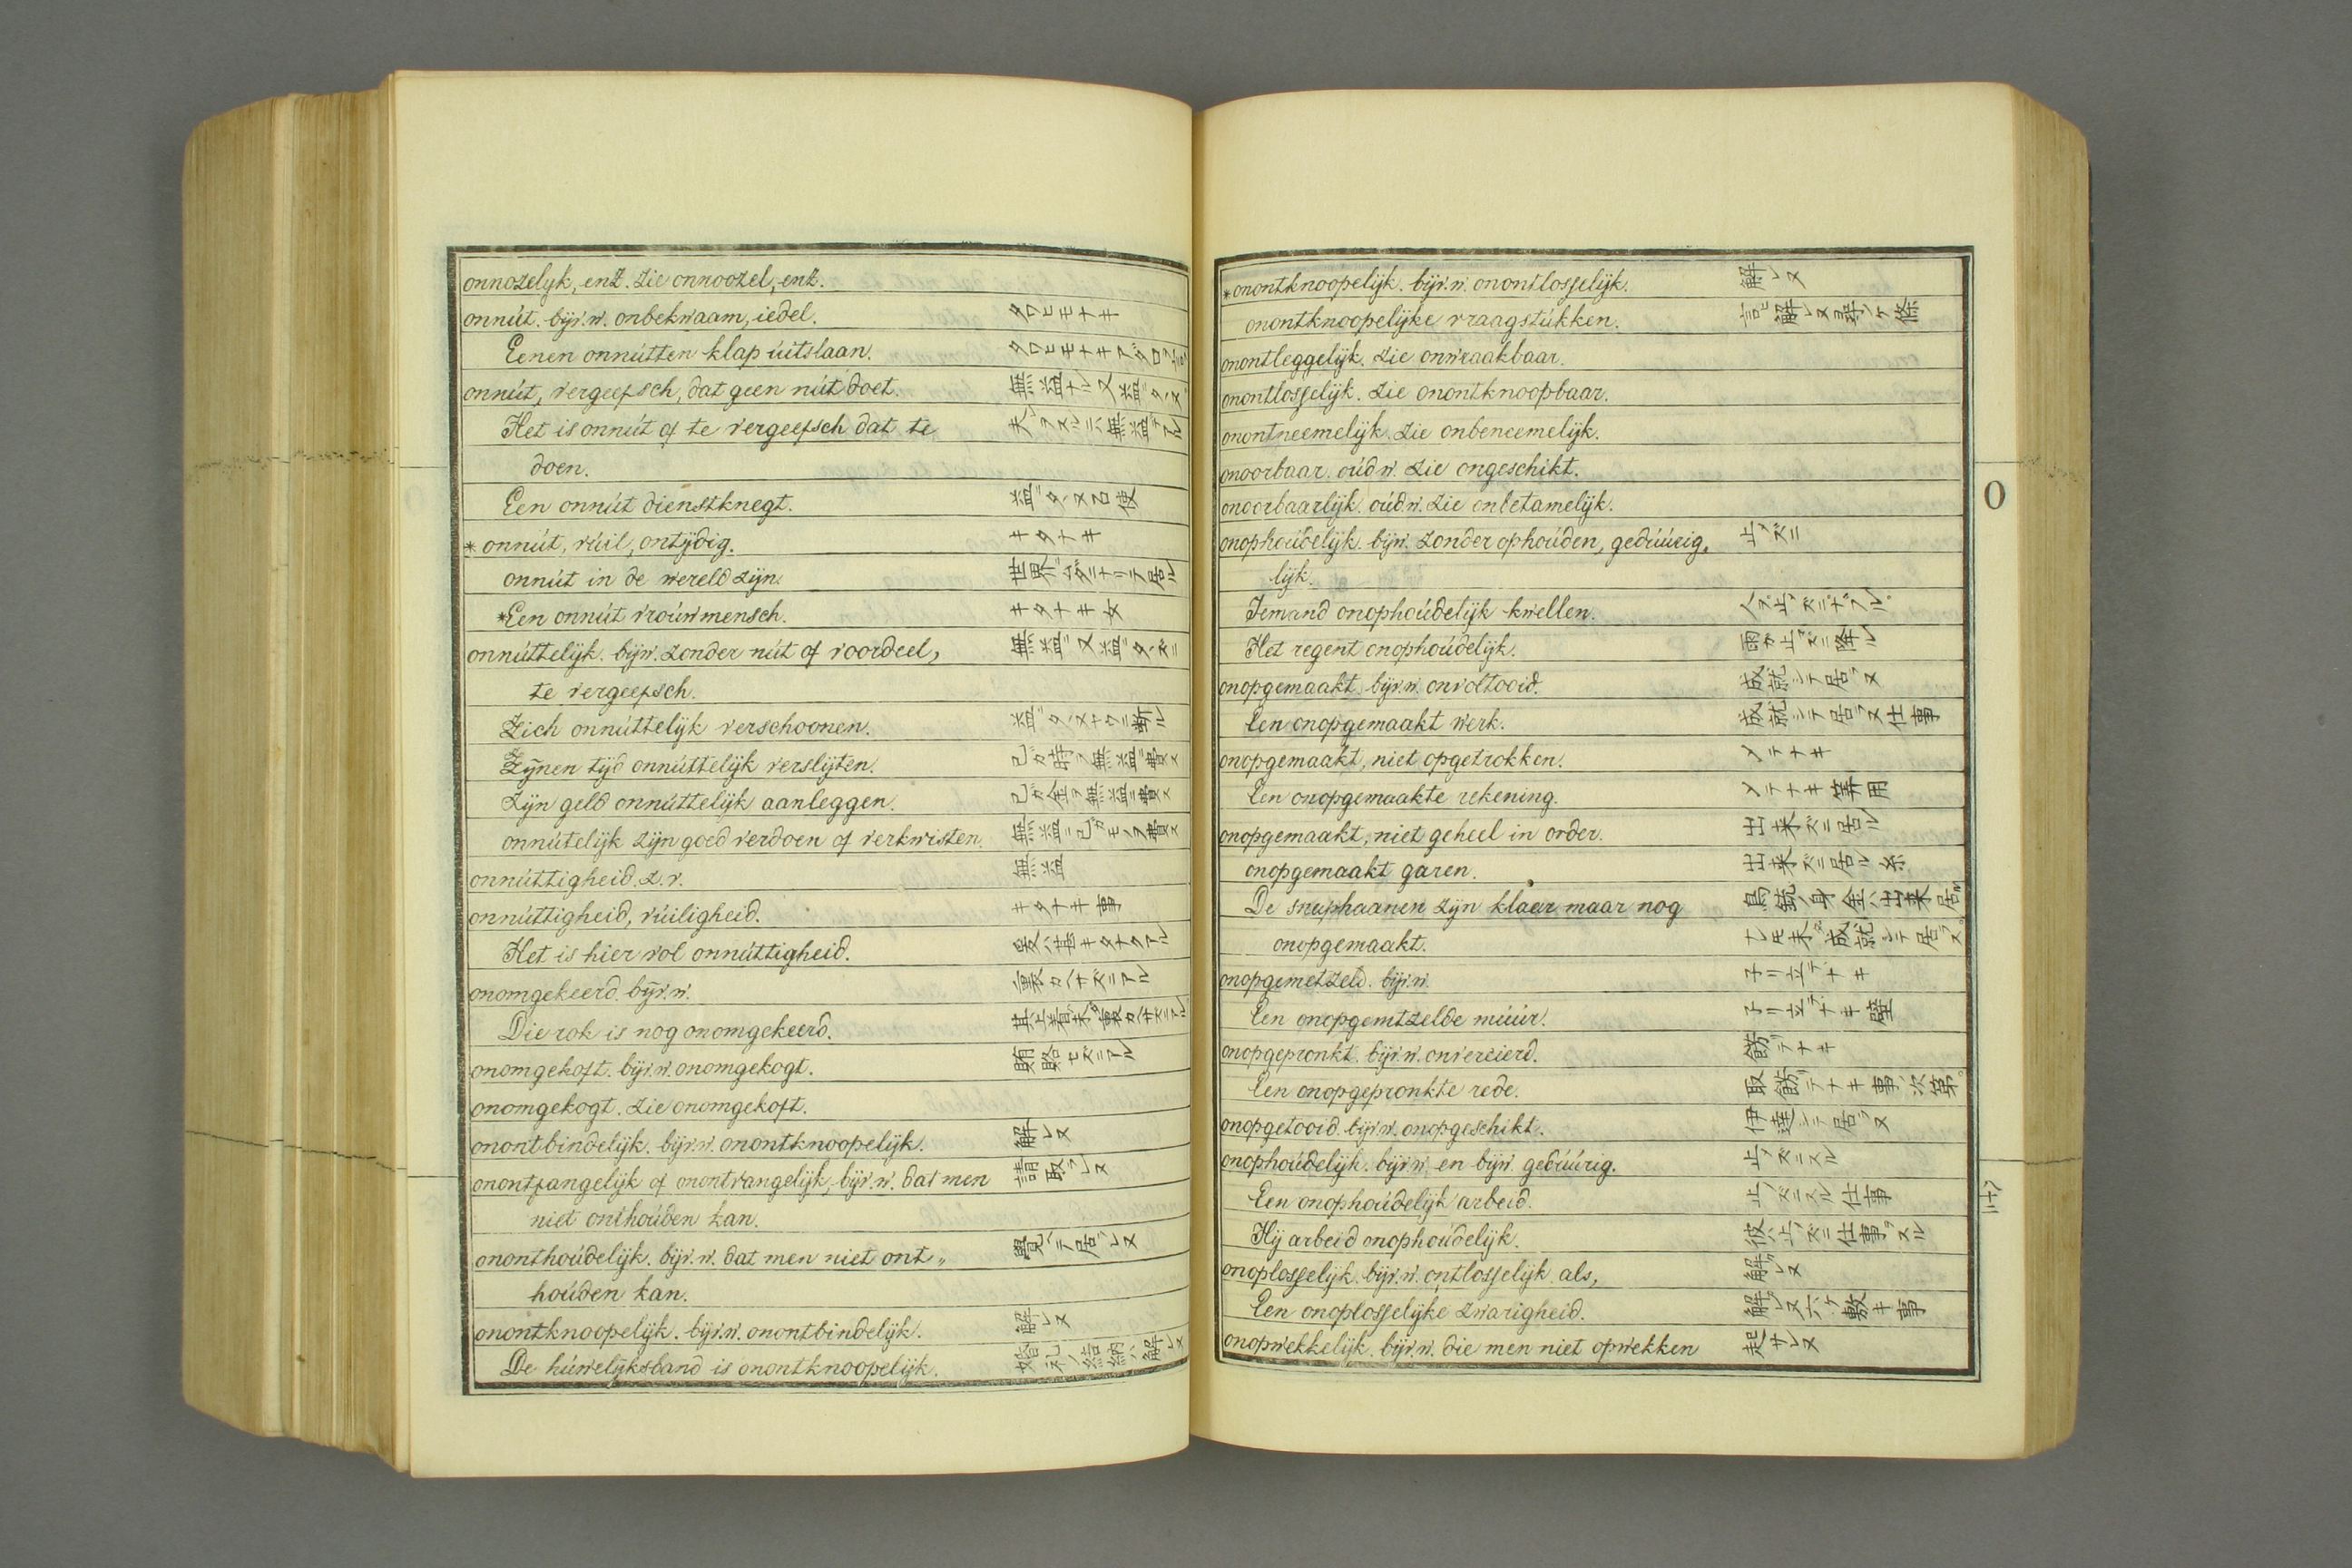 onnozelyk, enz. zie onnoozel, enz.
onnút. bijv.w. onbekwaam, iedel. タワヒモナキ
Eenen onnútten klap úitslaan. タワヒモナキアダロヲ言
onnút, vergeefsch, dat geen nút doet. 無益ナル又益ニタヽヌ
Het is onnút of te vergeefsch dat te 夫ヲスルハ無益デアル
doen.
Een onnút dienstknegt. 益ニタヽヌ召使
* onnút, vúil, ontijdig. キタナキ
onnút in de wereld zijn. 世界ニムダニナリテ居ル
*Een onnút vroúwmensch. キタナキ女
onnúttelijk. bijw. zonder nút of voordeel, 無益ニ又益ニタヽズニ
te vergeefsch.
Zich onnúttelijk verschoonen. 益ニタヽヌヤウニ断ル
Zijnen tijd onnúttelijk verslijten. 己ガ時ヲ無益ニ費ス
Zijn geld onnúttelijk aanleggen. 己ガ金ヲ無益ニ費ス
onnútelijk zijn goed verdoen of verkwisten. 無益ニ己ガモノヲ費ス
onnúttigheid. z.v. 無益
onnúttigheid, vúiligheid. キタナキ事
Het is hier vol onnúttigheid. 爰ハ甚キタナクアル
onomgekeerd. bijv.w. 裏カヘサズニアル
Die rok is nog onomgekeerd. 其上着未ダ裏カヘサズニアル
onomgekoft. bijv.w. onomgekogt. 賄賂セズニアル
onomgekogt. zie onomgekoft.
onontbindelijk. bijv.w. onontknoopelijk. 解レヌ
onontfangelijk of onontvangelijk, bijv.w. dat men 請取ラレヌ
niet onthoúden kan.
ononthoúdelijk. bijv.w. dat men niet ont„ 覺ヘテ居ラレヌ
hoúden kan.
onontknoopelijk. bijv.w. onontbindelijk. 解レヌ
De húwelijksband is onontknoopelijk. 婚礼ノ結納ハ解レヌ
*onontknoopelijk. bijv.w. onontlosselijk. 解レヌ
onontknoopelijke vraagstúkken. 解レヌ尋ノケ條
onontleggelijk. zie onwraakbaar.
onontlosselijk. zie onontknoopbaar.
onontneemelijk. zie onbeneemelijk.
onoorbaar. oúd w. zie ongeschikt.
onoorbaarlijk. oúd.w. zie onbetamelijk.
onophoúdelijk. bijw. zonder ophoúden, gedúúrig„ 止ズニ
lijk.
Iemand onophoúdelijk kwellen. 人ヲ止ズニナブル
Het regent onophoúdelijk. 雨ガ止ズニ降ル
onopgemaakt. bijv.w. onvoltooid. 成就シテ居ラヌ
Een onopgemaakt werk. 成就シテ居ラヌ仕事
onopgemaakt, niet opgetrokken. 〆テナキ
Een onopgemaakte rekening. 〆テナキ算用
onopgemaakt, niet geheel in order. 出来ズニ居ル
onopgemaakt garen. 出来ズニ居ル糸
De snaphaanen zijn klaar maar nog 鳥銃ノ身金ハ出来居
onopgemaakt. 未ダ成就シテ居ラヌ
onopgemetzeld. bijv.w. 子リ立テナキ
Een onopgemtzelde múúr. 子リ立テナキ壁
onopgepronkt. bijv.w. onvercierd. 餝リテナキ
Een onopgepronkte rede. 取餝リテナキ事ノ次第
onopgetooid. bijv.w. onopgeschikt. 伊達シテ居ラヌ
onophoúdelijk. bijv.w. en bijw. gedúúrig. 止ズニスル
Een onophoúdelijk arbeid. 止ズニスル仕事
Hij arbeid onophoúdelijk. 彼ハ止ズニ仕事ヲスル
onoplosselijk. bijv.w. ontlosselijk. als, 解レヌ
Een onoplosselijke zwarigheid. 解レヌ六ケ敷キ事
onopwekkelijk. bijv.w. die men niet opwekken 起サレヌ
O